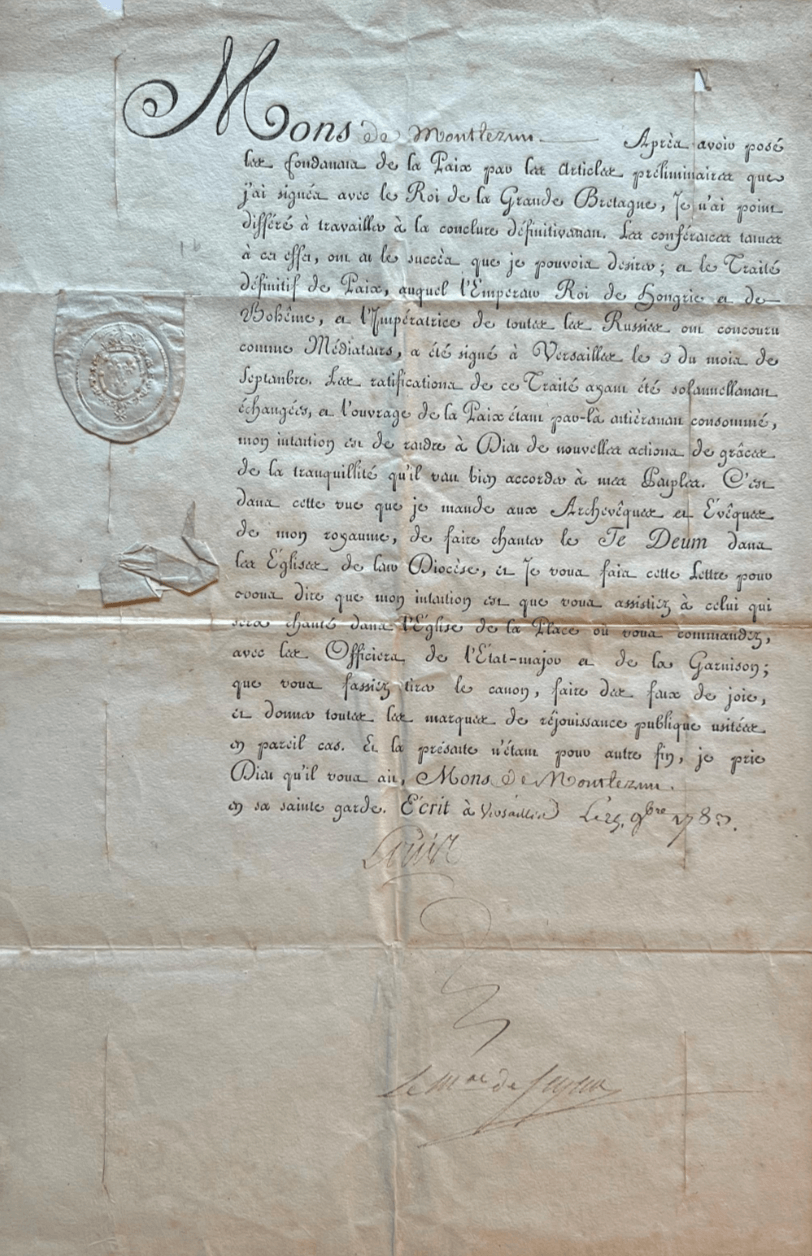 Mons de Montlezun Après avoir posé
les fondemens de la Paix par les Articles préliminaires que
j'ai signés avec le Roi de la Grande Bretagne, Je n'ai point
différé à travailler à la conclure définitivement. Les conférences tenues
à cet effet, ont eu le succès que je pouvois desirer; et le Traité
définitif de Paix, auquel l'Empereur Roi de Hongrie et de
Bohême, et l'Impératrice de toutes les Russies ont concouru
comme Médiateurs, a été signé à Versailles le 3 du mois de
Septembre. Les ratifications de ce Traité ayant été solennellement
échangées, et l'ouvrage de la Paix étant par-là entièrement consommé,
mon intention est de rendre à Dieu de nouvelles actions de grâces
de la tranquillité qu'il veut bien accorder à mes Peuples. C'est
dans cette vue que je mande aux Archevêques et Évêques
de mon royaume, de faire chanter le Te Deum dans
les Églises de leur Diocèse, et Je vous fais cette Lettre pour
vous dire que mon intention est que vous assistiez à celui qui
sera chanté dans l'Église de la Place où vous commandez,
avec les Officiers de l'État-major et de la Garnison;
que vous fassiez tirer le canon, faire des feux de joie,
et donner toutes les marques de réjouissance publique usitées
en pareil cas. Et la présente n'étant pour autre fin, je prie
Dieu qu'il vous ait, Mons de Montlezun.
en sa sainte garde. Écrit à Versailles Le 9bre 1783.
Louis
Le Mal de Segur